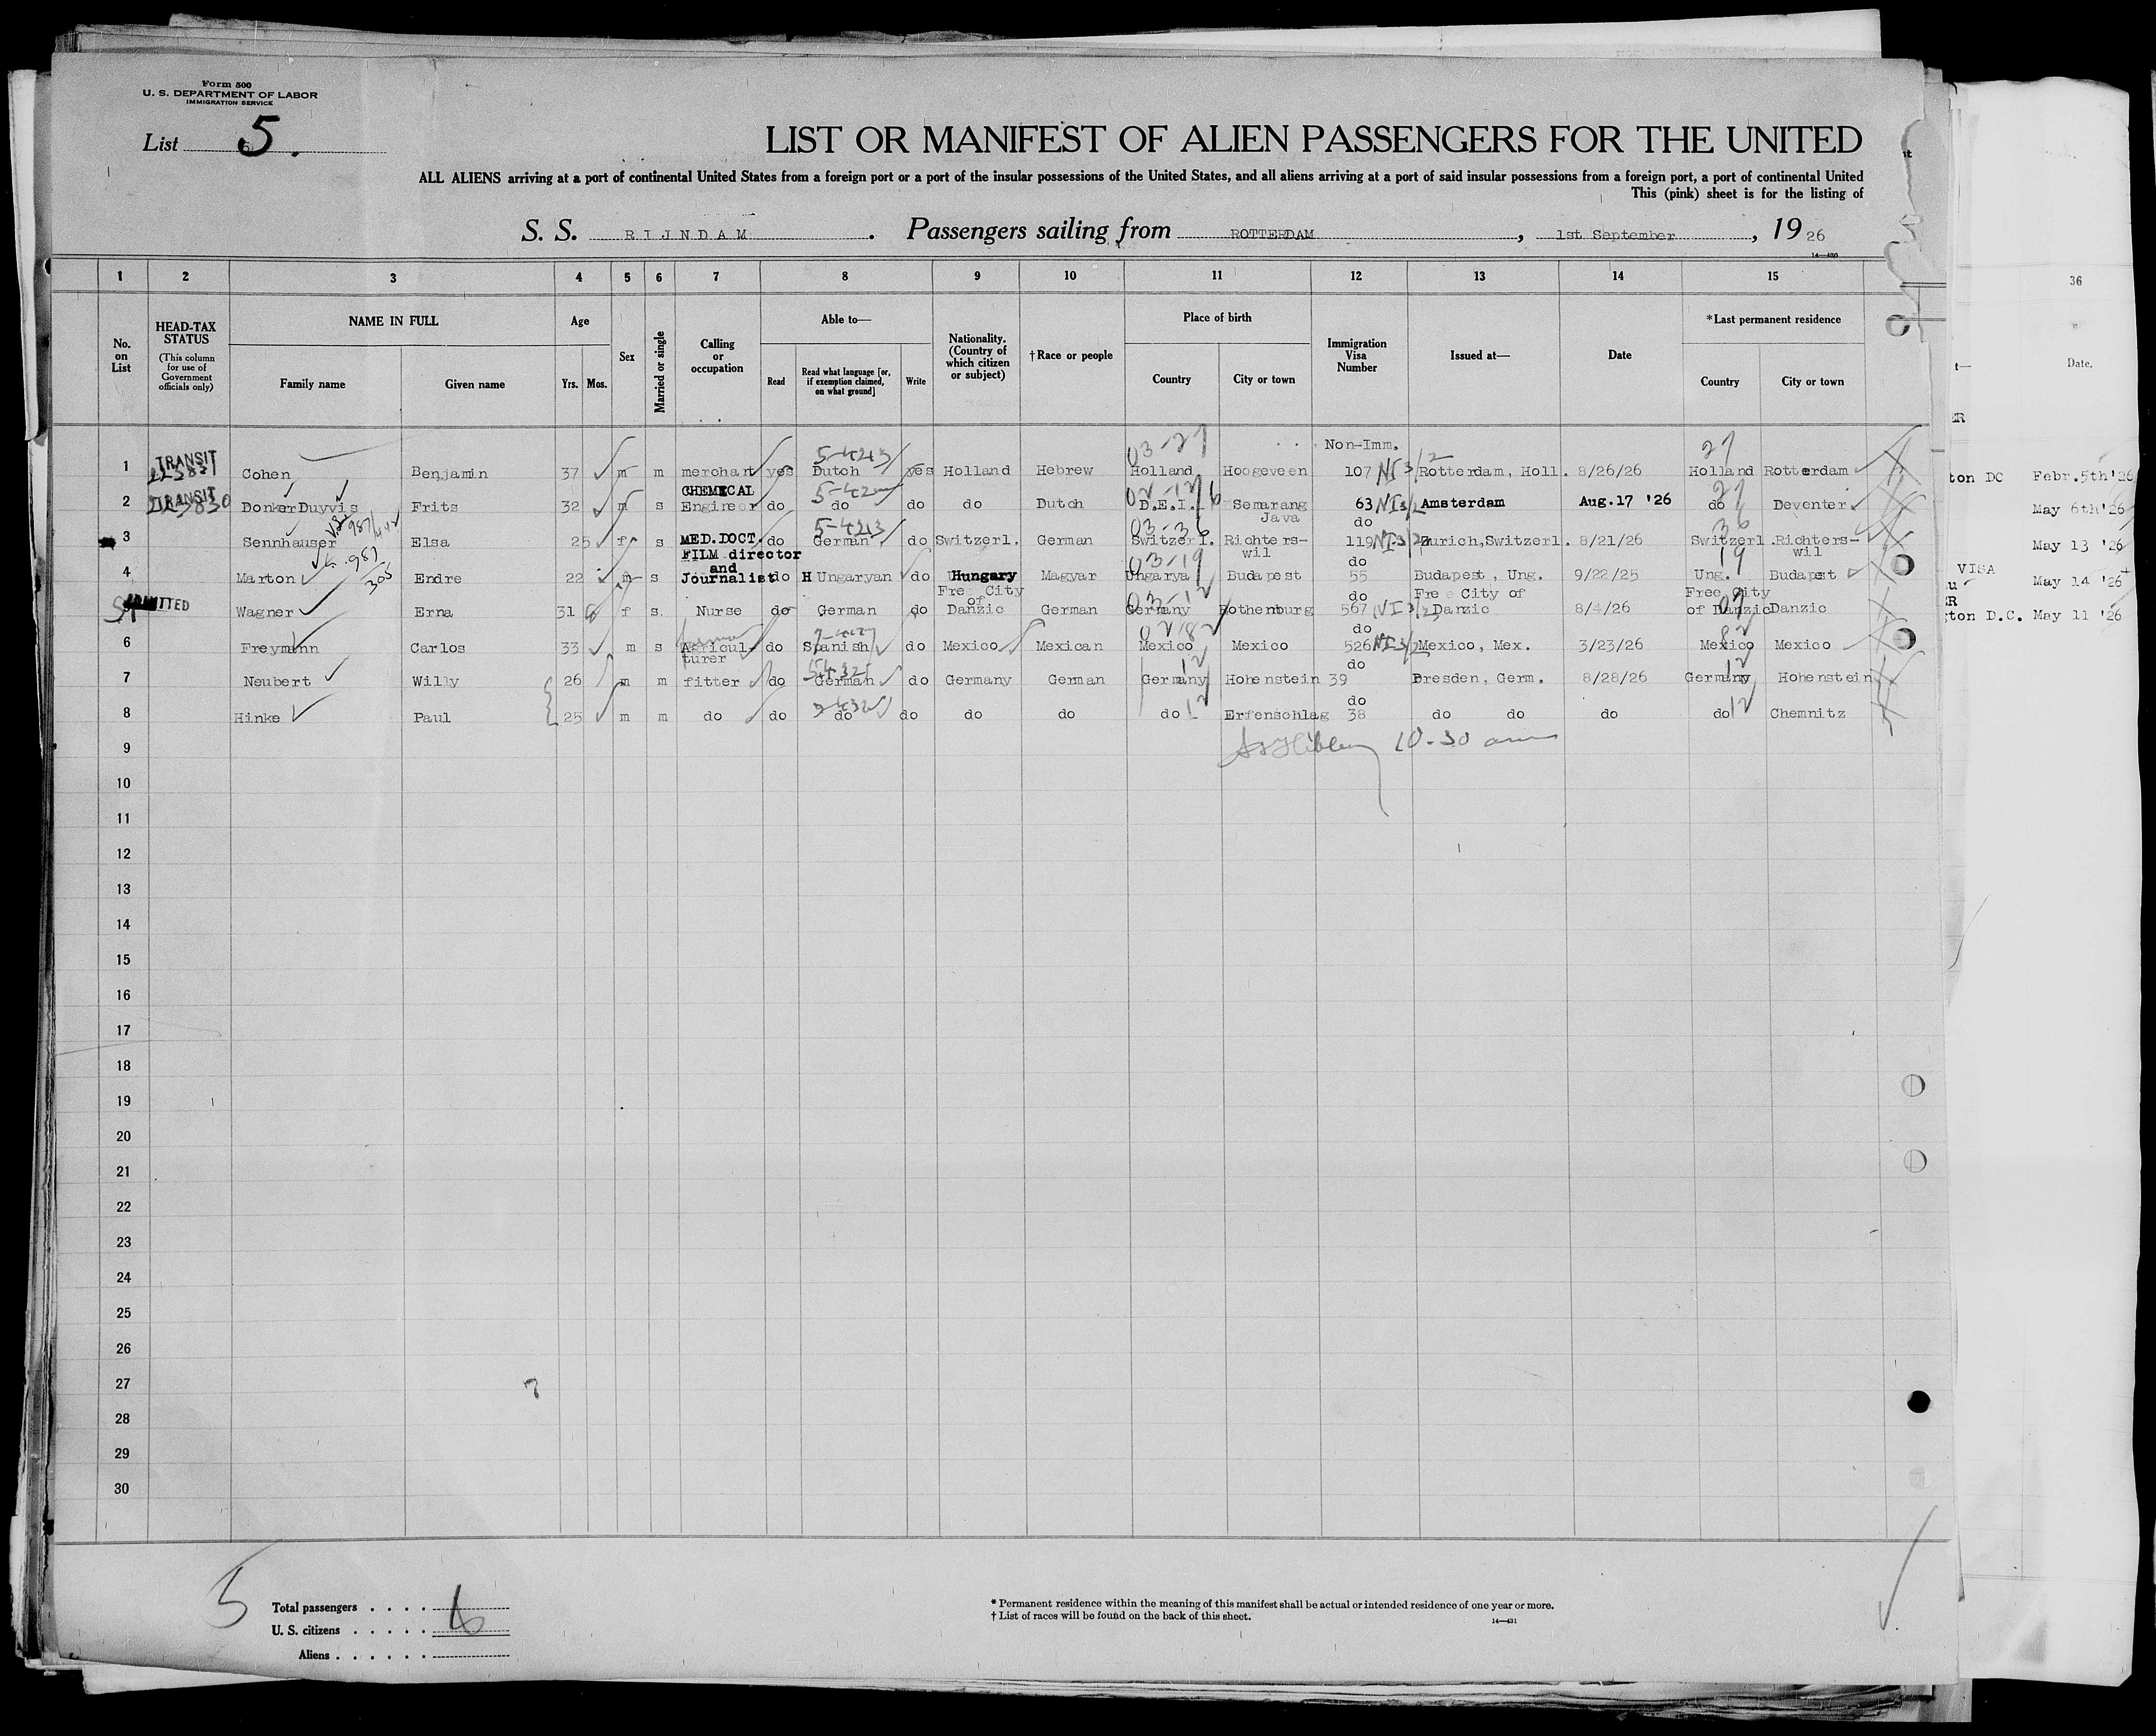 Form 500
U. S. DEPARTMENT OF LABOR
IMMIGRATION SERVICE
List 5.
LIST OR MANIFEST OF ALIEN PASSENGERS FOR THE UNITED
ALL ALIENS arriving at a port of continental United States from a foreign port or a port of the insular possessions of the United States, and all aliens arriving at a port of said insular possessions from a foreign port, a port of continental United
This (pink) sheet is for the listing of
S. S. RIJNDAM. Passengers sailing from ROTTERDAM, 1st September, 1926
14—430
1 2 3 4 5 6 7 8 9 10 11 12 13 14 15 36
No. on List
HEAD-TAX STATUS
(This column for use of Government officials only)
NAME IN FULL
Family name Given name
Age
Yrs. Mos.
Sex
Married or single
Calling or occupation
Able to—
Read
Read what language [or, if exemption claimed, on what ground]
Write
Nationality. (Country of which citizen or subject)
† Race or people
Place of birth
Country City or town
Immigration Visa Number
Issued at—
Date
*Last permanent residence
Country City or town
Date.
Non-Imm.
1 TRANSIT Cohen Benjamin 37 m m merchant yes 5-4213 Dutch yes Holland Hebrew 03-27 Holland Hoogeveen 107 NI 3/2 Rotterdam, Holl. 8/26/26 27 Holland Rotterdam
ton DC Febr.5th'26
2 TRANSIT Donker Duyvis Frits 32 m s CHEMICAL Engineer do do do do Dutch D.E.I. Semarang Java 63 NI 3/2 Amsterdam Aug.17 '26 27 do Deventer
May 6th'26
3 Sennhauser Elsa 25 f s MED.DOCT. do 5-4213 German do Switzerl. German 03-36 Switzerl. Richters-wil do 119 NI-3/2 Zurich,Switzerl. 8/21/26 36 Switzerl. Richters-wil
May 13 '26
4 Marton Endre 22 m s FILM director and Journalist do HUngaryan do Hungary Magyar 03-19 Ungarya Budapest do 55 Budapest, Ung. 9/22/25 19 Ung. Budapest
VISA May 14 '26
5 ADMITTED Wagner Erna 31 f s. Nurse do German do Free City of Danzic German 03-12 Germany Rothenburg do 567 NI 3/2 Free City of Danzic 8/4/26 Free City of Danzic Danzic
ton D.C. May 11 '26
6 Freymann Carlos 33 m s Agricul-turer do Spanish do Mexico Mexican Mexico Mexico do 526 NI-3/2 Mexico, Mex. 3/23/26 Mexico Mexico
7 Neubert Willy 26 m m fitter do German do Germany German 12 Germany Hohenstein do 39 Dresden, Germ. 8/28/26 12 Germany Hohenstein
8 Hinke Paul 25 m m do do do do do do do 12 Erfenschlag do 38 do do do do 12 Chemnitz
9 10-30 am
10
11
12
13
14
15
16
17
18
19
20
21
22
23
24
25
26
27
28
29
30
5
Total passengers . . . .
U. S. citizens . . . . .
Aliens . . . . . .
* Permanent residence within the meaning of this manifest shall be actual or intended residence of one year or more.
† List of races will be found on the back of this sheet.
14—431